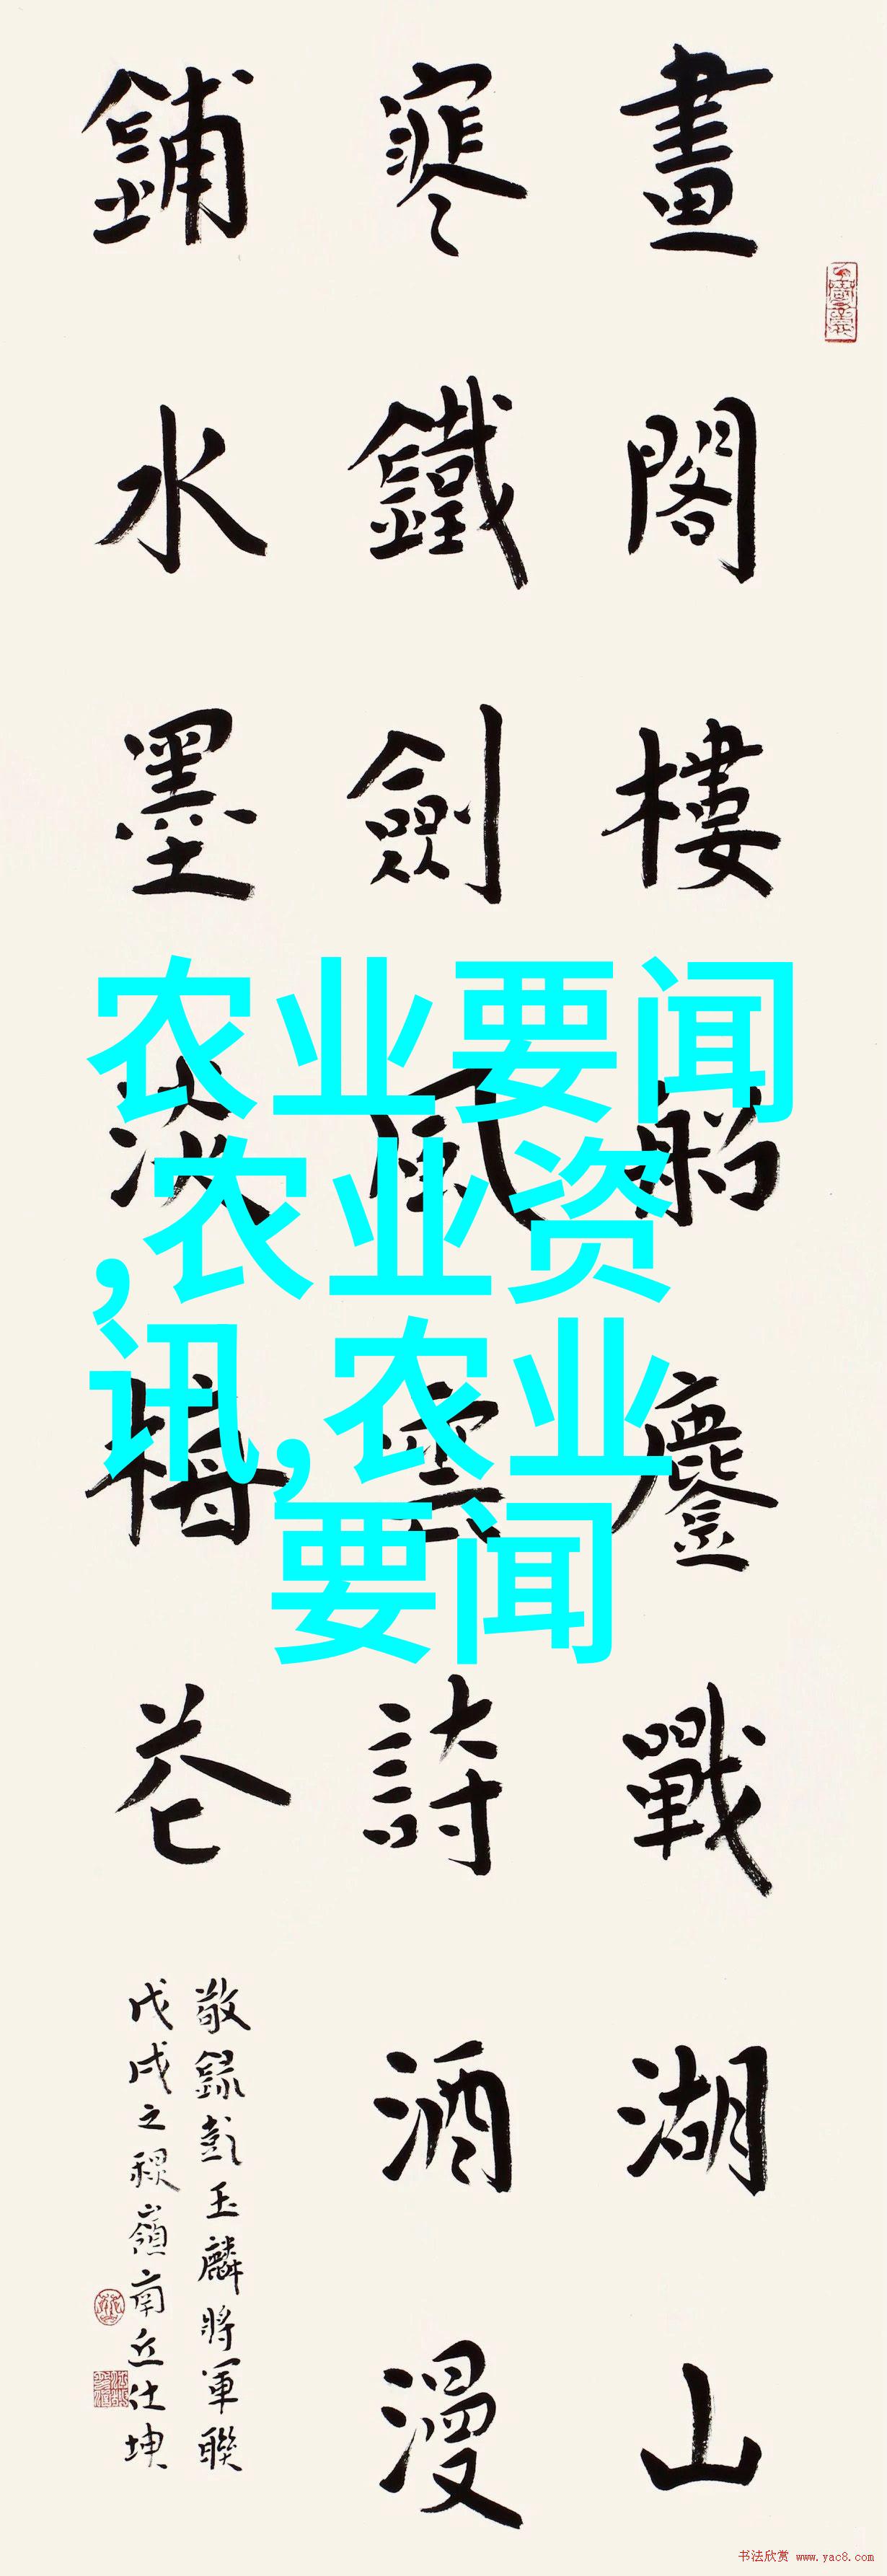 畫閣樓船鏖戰湖山
寒鐵劍風雲詩酒漫
鋪水墨淡梅花
敬錄彭玉麟將軍聯
戊戌之嶺南丘仕坤
农业要闻
,农业资
讯,农业
要闻
书法欣赏 www.yac8.com